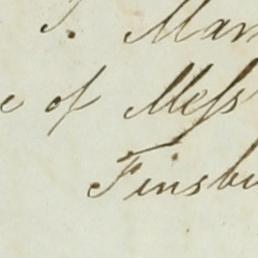 J. Man
e of Mess
Finsbu